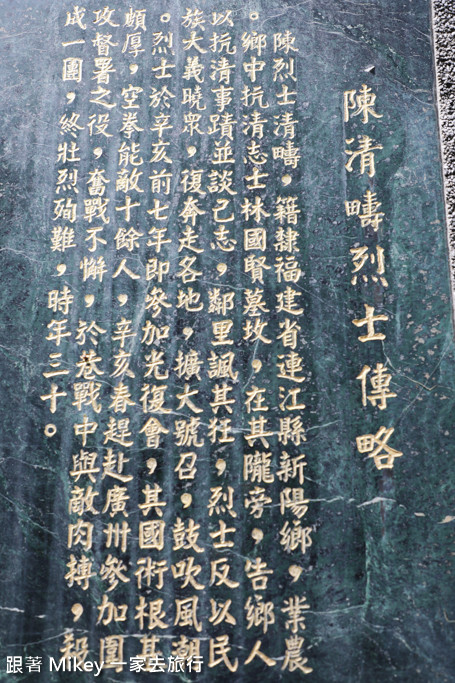 陳清疇烈士傳略
陳烈士清疇，籍隸福建省連江縣新陽鄉，業農
。鄉中抗清志士林國賢墓坟，在其隴旁，告鄉人
以抗清事蹟並談己志，鄰里諷其狂，烈士反以民
族大義曉眾，復奔走各地，擴大號召，鼓吹風潮
。烈士於辛亥前七年即參加光復會，其國術根基
頗厚，空拳能敵十餘人，辛亥春趕赴廣州參加圍
攻督署之役，奮戰不懈，於巷戰中與敵肉搏，殺
成一團，終壯烈殉難，時年三十。
跟著 Mikey 一家去旅行